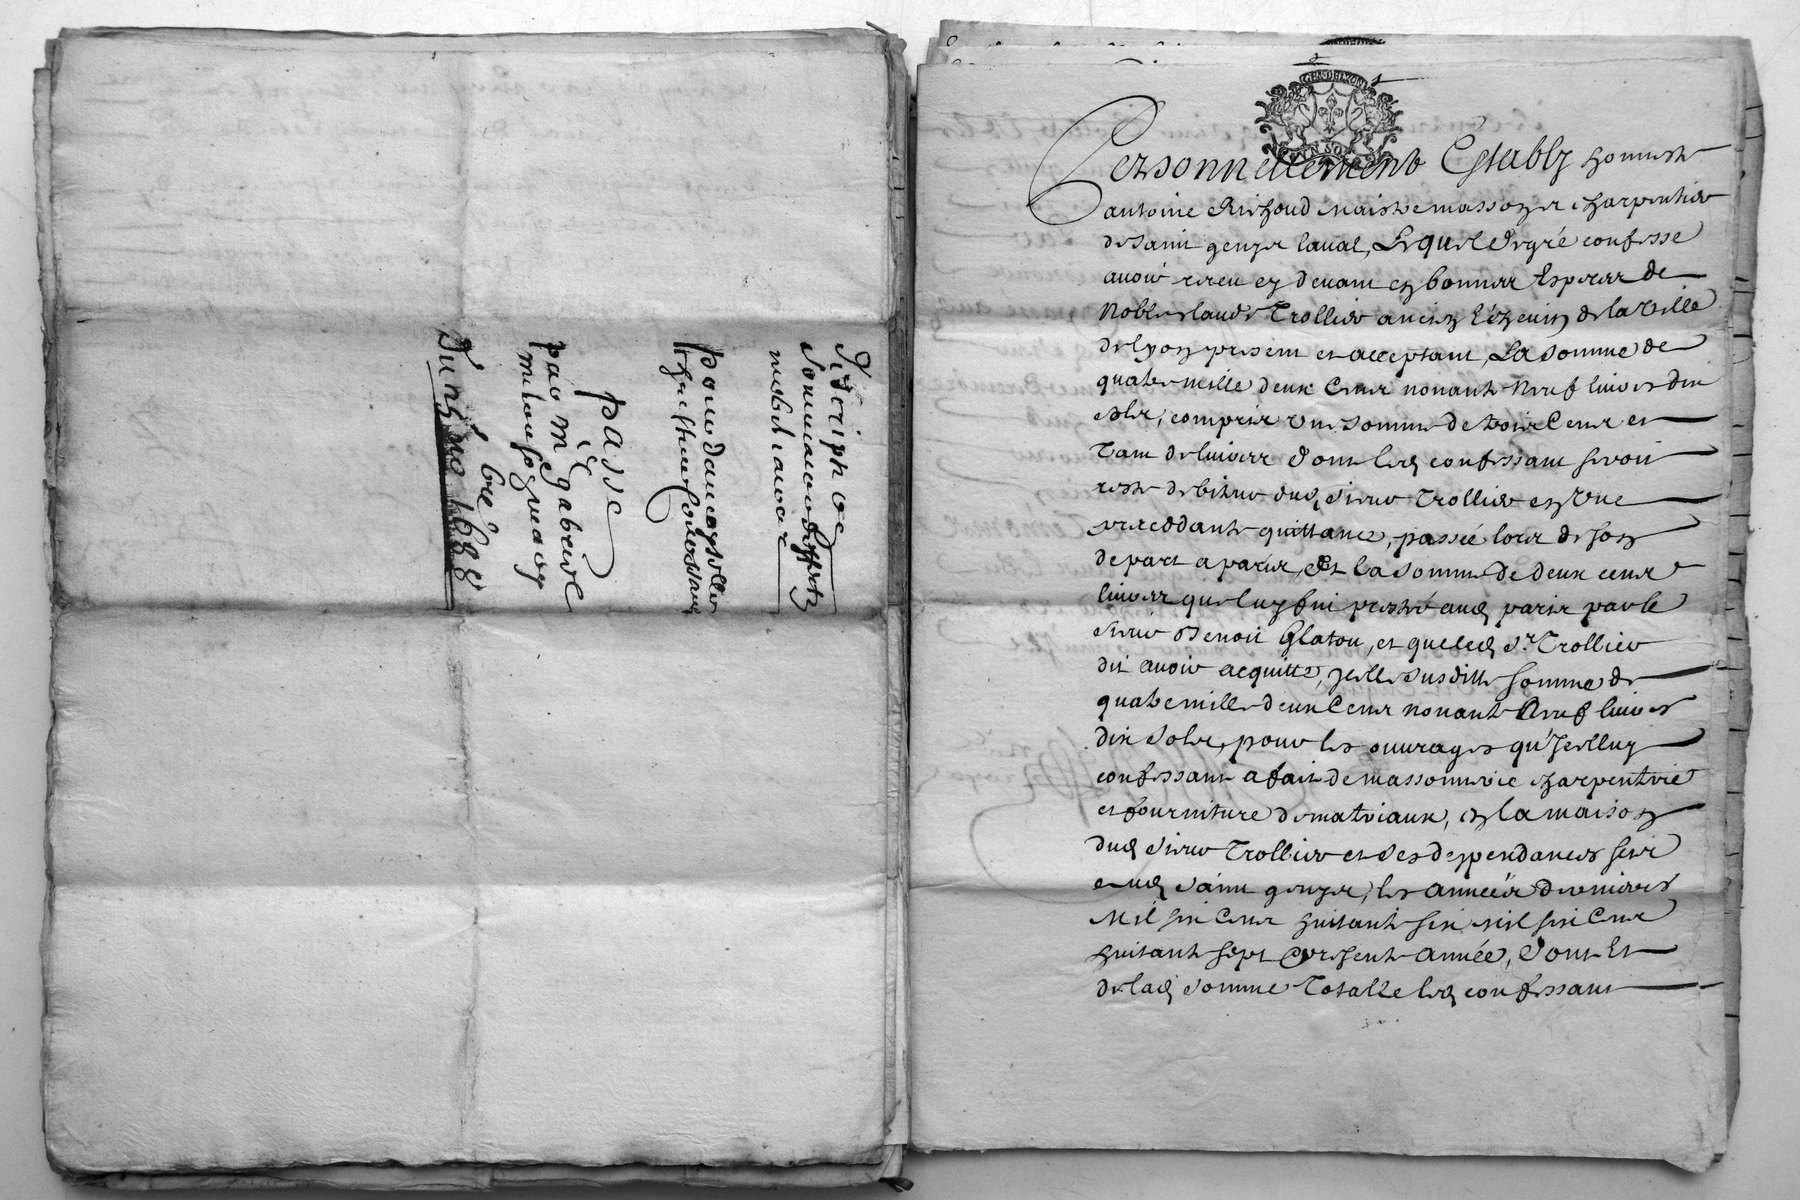 passé
par Mr gabriel
Du 1688
GEN DE LYON
VN SOL
Personnellement Estably honneste
antoine Richoud Maistre masson et charpentier
de saint genys laual, Lequel de gré confesse
auoir receu cy deuant en bonnes Especes de
Noble claude Trollier ancien Escheuin de la Ville
de lyon present et acceptant, La somme de
quatre mille deux Cents nonante Neuf liures dix
sols, compris vne somme de trois Cents et
Tant de liures dont led confessant seroit
resté debiteur aud sieur Trollier en vne
precedante quittance, passée lors de son
depart a paris, Et la somme de deux cents
liures que luy fut presté aud paris par le
sieur Benoit Glatou, et que led Sr. Trollier
dit auoir acquitté, jcelle susditte somme de
quatre mille deux Cents nonante Neuf liures
dix sols, pour les ouurages qu'Jcelluy
confessant a fait de massonnerie charpenterie
et fourniture de materiaux, en la maison
dud sieur Trollier et ses deppendances sise
aud saint genys, les années dernieres
Mil six Cents huitante six, mil six Cents
huitante sept presente année, dont Et
de lad somme Totalle led confessant